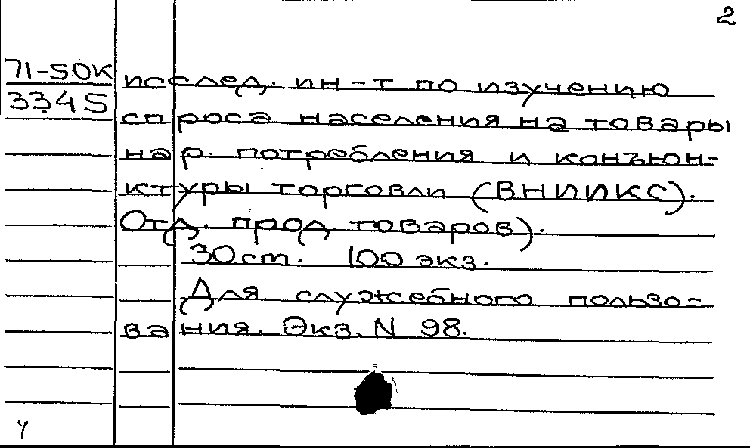 2
71-50К
3345
исслед. ин-т по изучению
спроса населения на товары
нар. потребления и конъюн-
ктуры торговли (ВНИИКС).
Отд. прод товаров).
30 ст. 100 экз.
Для служебного пользо-
вания. Экз. N 98.